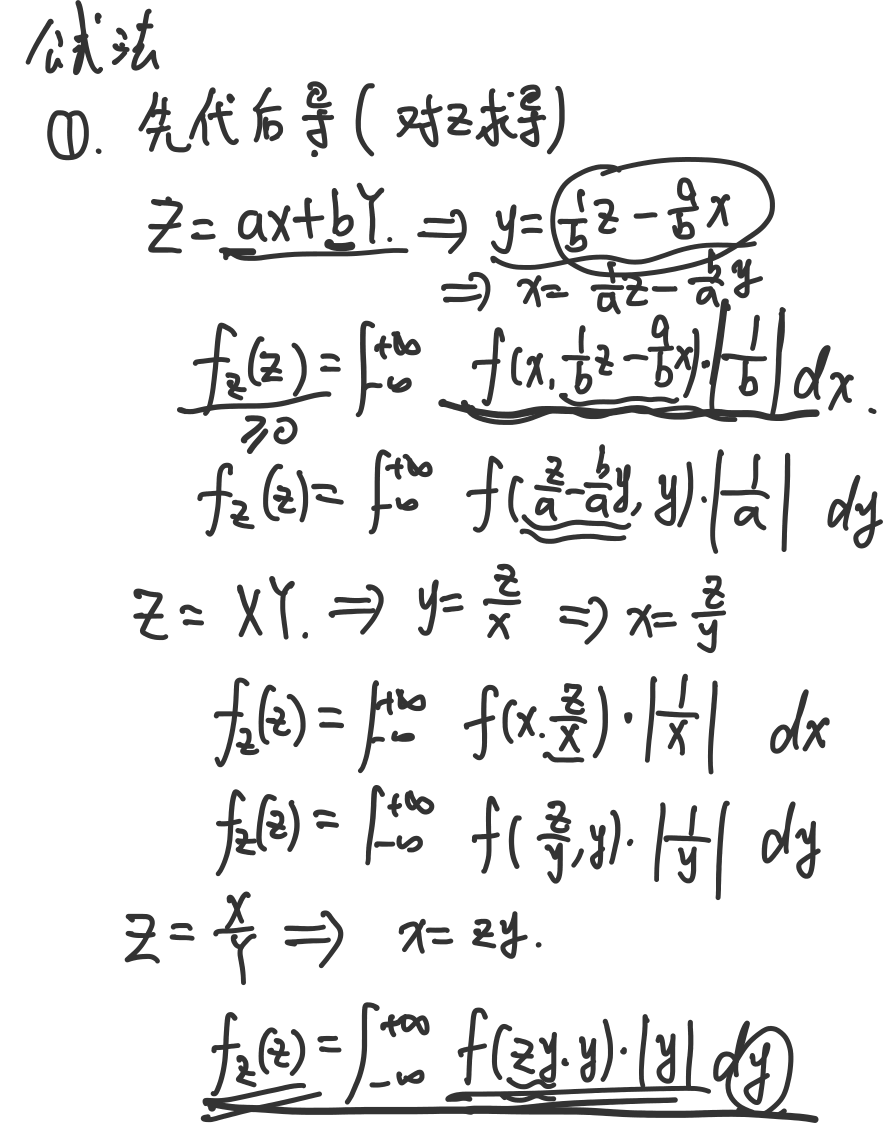 公式法
①. 先代后导(对z求导)
Z = aX+bY. ⇒ y = 1/b z − a/b x
⇒ x = 1/a z − b/a y
f_Z(z) = ∫_{-∞}^{+∞} f(x, 1/b z − a/b x)·|1/b| dx.
≥0
f_Z(z) = ∫_{-∞}^{+∞} f(z/a − b/a y, y)·|1/a| dy
Z = XY. ⇒ y = z/x ⇒ x = z/y
f_Z(z) = ∫_{-∞}^{+∞} f(x. z/x)·|1/x| dx
f_Z(z) = ∫_{-∞}^{+∞} f(z/y, y)·|1/y| dy
Z = X/Y ⇒ x = zy.
f_Z(z) = ∫_{-∞}^{+∞} f(zy. y)·|y| dy